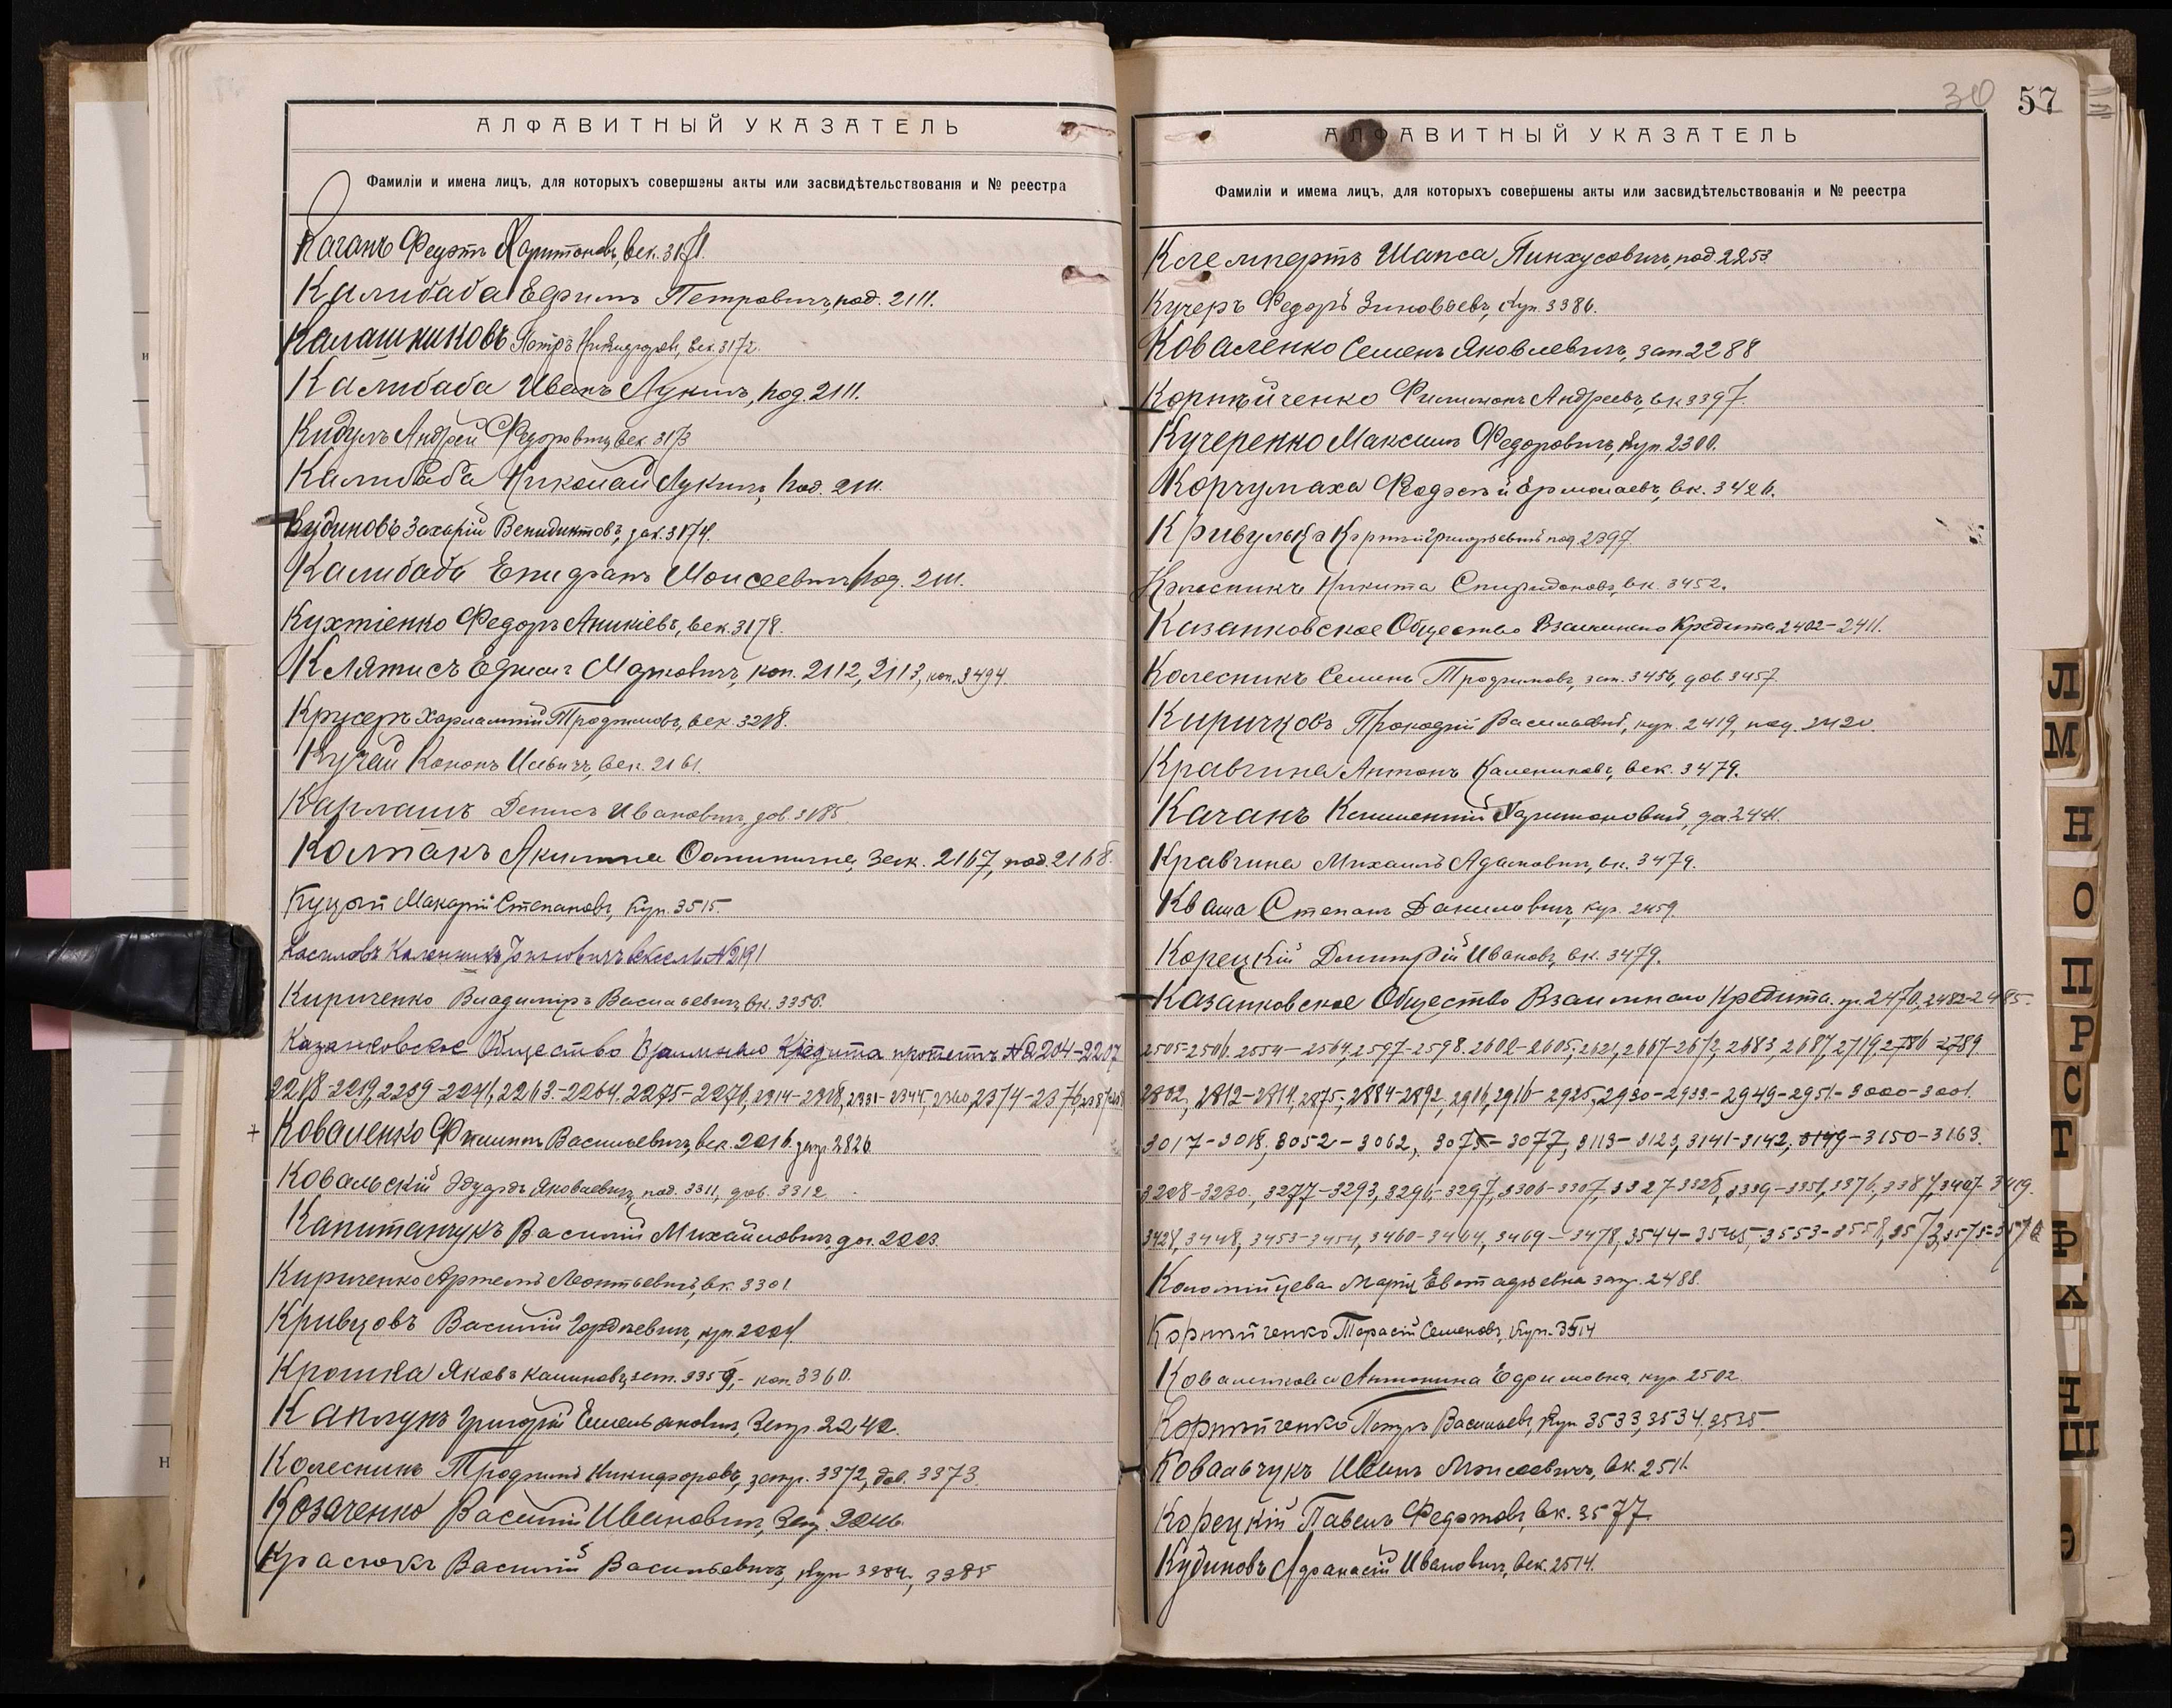 АЛФАВИТНЫЙ УКАЗАТЕЛЬ
Фамиліи и имена лицъ, для которыхъ совершены акты или засвидѣтельствованія и № реестра
Каганъ Харитоновъ, век. 3171.
Калибаба Ефимъ Петровичъ, под. 2111.
Калашниковъ Петръ Никифоровъ, век. 3172.
Калибаба Иванъ Лукичъ, под. 2111.
Андрей Федоровичъ, век. 3173
Калибаба Николай Лукичъ, под. 2111.
Кудиновъ Захарій Венидиктовъ, 3174.
Калибаба Епифанъ Моисеевичъ под. 2111.
Кухтіенко Федоръ Аникіевъ, век. 3178.
Клятисъ Марковичъ, коп. 2112, 2113, коп. 3494.
Харлампій Трофимовъ, век. 3218.
Кучай Кононъ век. 2161.
Карлашъ Денисъ Ивановичъ, дов. 3185.
Колпакъ Акилина Осиповна, 2167, под. 2168.
Куцый Макарій Степановъ, куп. 3515.
Каленникъ вексель № 2191
Кириченко Владиміръ Васильевичъ, вк. 3356.
Казанковское Общество Взаимнаго Кредита протестъ № 2204-2217
2218-2219, 2239-2241, 2263-2264, 2275-2276, 2314-2318, 2331-2344, 2360, 2374-2376,
Коваленко Филиппъ Васильевичъ, век. 2216. 2826
Ковальскій Эдуардъ Яковлевичъ, под. 3311, дов. 3312
Капитанчукъ Василій Михайловичъ, 2203.
Кириченко Артемъ Леонтьевичъ, вк. 3301
Кривцовъ Василій Гордѣевичъ, куп. 2204
Крошка Яковъ 3359, - коп. 3360.
Каплунъ Григорій Емельяновичъ, 2240.
Колесникъ Трофимъ Никифоровъ, запр. 3372, дов. 3373.
Козаченко Василій Ивановичъ, 2246.
Красюкъ Василій Васильевичъ, куп. 3384, 3385
30 57
АЛФАВИТНЫЙ УКАЗАТЕЛЬ
Фамиліи и имема лицъ, для которыхъ совершены акты или засвидѣтельствованія и № реестра
Клемпертъ Шапса Пинхусовичъ, под. 2253
Кучеръ Федоръ Зиновьевъ, куп. 3386.
Коваленко Семенъ Яковлевичъ, зап. 2288
Корнѣйченко Филимонъ Андреевъ, вк. 3397.
Кучеренко Максимъ Федоровичъ, куп. 2300.
Корчумаха Федосѣй Ермолаевъ, вк. 3426.
Кривулька Корнѣй Григорьевичъ под. 2397.
Колесникъ Никита Спиридоновъ, вк. 3452.
Казанковское Общество Взаимнаго Кредита 2402-2411.
Колесникъ Семенъ Трофимовъ, зап. 3456, дов. 3457
Киричковъ Прокофій Васильевичъ, куп. 2419, 2420.
Кравчина Антонъ Калениковъ, век. 3479.
Каганъ Климентій Харитоновичъ, 2441.
Кравчина Михаилъ Адамовичъ, вк. 3479.
Кваша Степанъ Даниловичъ, куп. 2459.
Корецкій Димитрій Ивановъ, вк. 3479.
Казанковское Общество Взаимнаго Кредита. пр. 2470, 2482-2485-
2505-2506. 2554-2564, 2597-2598. 2602-2605, 2621, 2667-2672, 2683, 2687, 2719, 2786-2789
2802, 2812-2814, 2875-, 2884-2892, 2916, 2916-2925, 2930-2933-2949-2951-3000-3001.
3017-3018, 3052-3062, 3075-3077, 3113-3123, 3141-3142, 3149-3150-3163.
3208-3220, 3277-3293, 3296-3297, 3306-3307, 3327-3328, 3339-3351, 3376, 3387, 3407-3419.
3428, 3448, 3453-3454, 3460-3464, 3469-3478, 3544-3545, 3553-3558, 3573, 3575-3576
Коломійцева Марія Евстафьевна запр. 2488.
Корнѣйченко Тарасій Семеновъ, куп. 3514
Коваленкова Антонина Ефимовна, куп. 2502.
Корнѣйченко Петръ Васильевъ, куп. 3533, 3534, 3535.
Ковальчукъ Иванъ Моисеевичъ, вк. 2511.
Корецкій Павелъ Федотовъ, вк. 3577.
Кудиновъ Афанасій Ивановичъ, век. 2514.
Л
М
Н
О
П
Р
С
Т
Ф
Х
Ш
Э